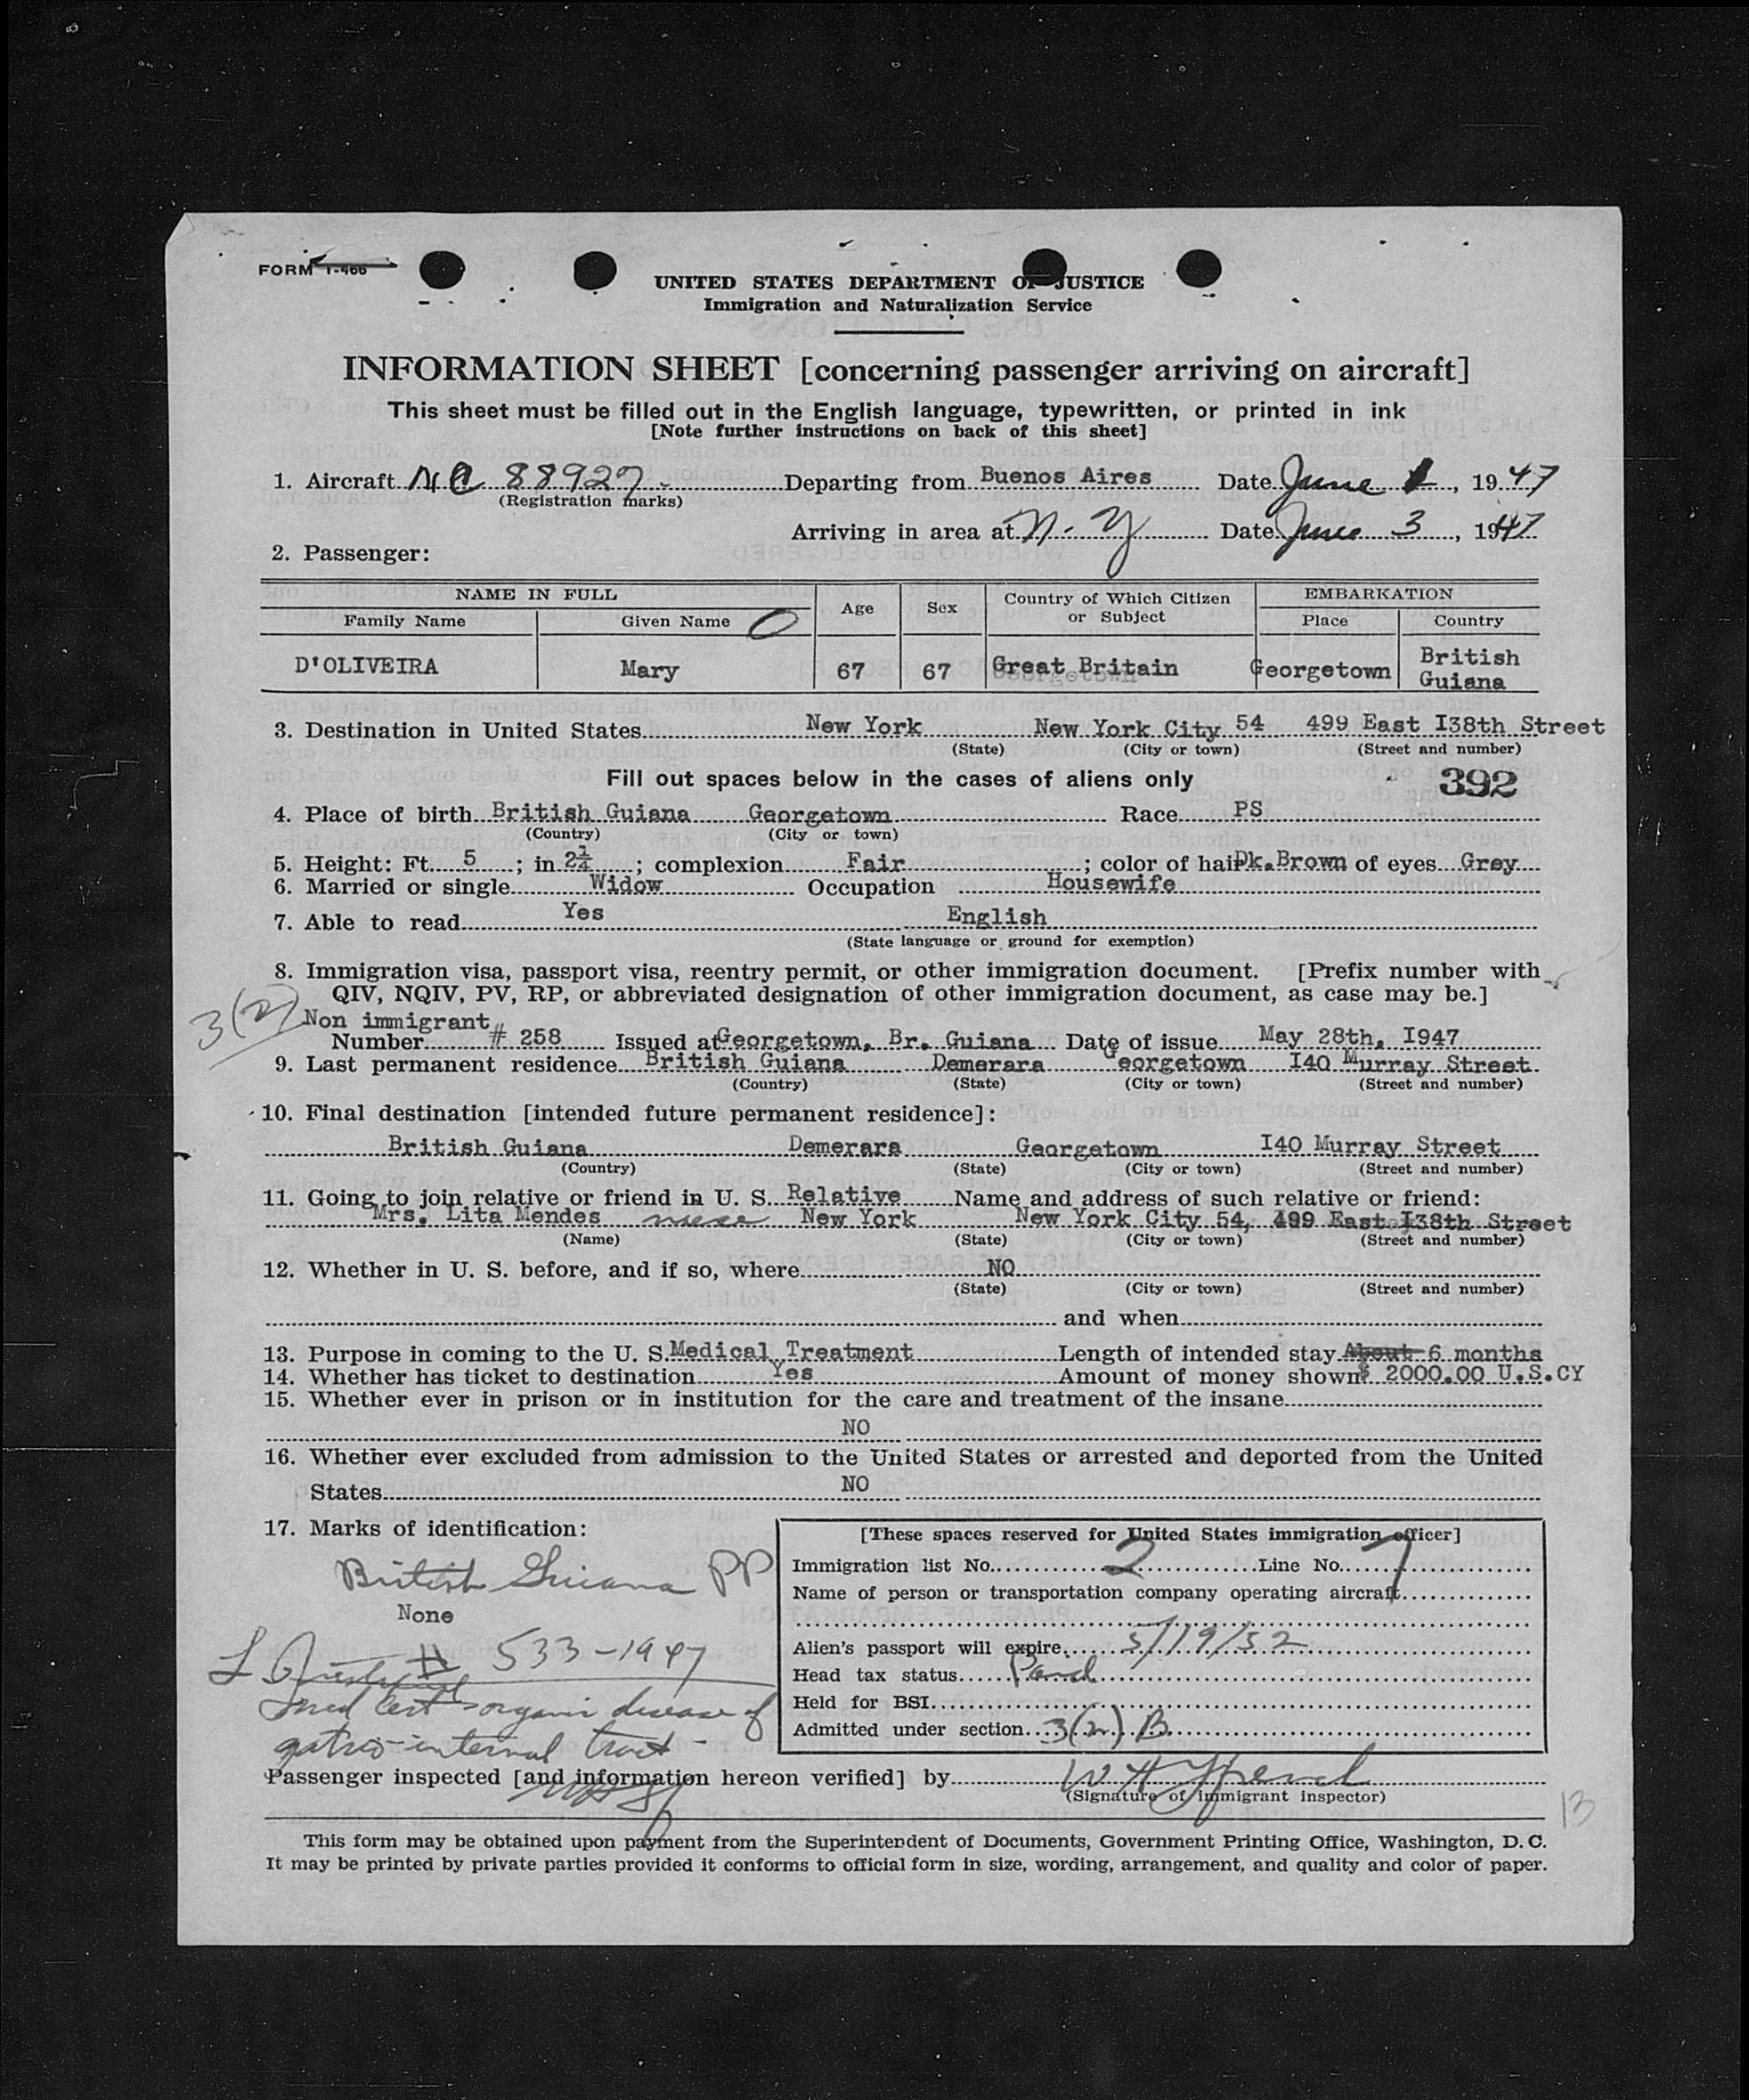 FORM I-466
UNITED STATES DEPARTMENT OF JUSTICE
Immigration and Naturalization Service
INFORMATION SHEET [concerning passenger arriving on aircraft]
This sheet must be filled out in the English language, typewritten, or printed in ink
[Note further instructions on back of this sheet]
1. Aircraft NC 88927 Departing from Buenos Aires Date June 1, 1947
(Registration marks)
Arriving in area at N.Y Date June 3, 1947
2. Passenger:
NAME IN FULL Age Sex Country of Which Citizen or Subject EMBARKATION
Family Name Given Name Place Country
D'OLIVEIRA Mary 67 67 Great Britain Georgetown British Guiana
3. Destination in United States New York New York City 54 499 East I38th Street
(State) (City or town) (Street and number)
Fill out spaces below in the cases of aliens only 392
4. Place of birth British Guiana Georgetown Race PS
(Country) (City or town)
5. Height: Ft. 5; in 2¼; complexion Fair; color of hair Dk.Brown of eyes Grey
6. Married or single Widow Occupation Housewife
7. Able to read Yes English
(State language or ground for exemption)
8. Immigration visa, passport visa, reentry permit, or other immigration document. [Prefix number with
QIV, NQIV, PV, RP, or abbreviated designation of other immigration document, as case may be.]
3(2) Non immigrant
Number # 258 Issued at Georgetown, Br. Guiana Date of issue May 28th, I947
9. Last permanent residence British Guiana Demerara Georgetown I40 Murray Street
(Country) (State) (City or town) (Street and number)
10. Final destination [intended future permanent residence]:
British Guiana Demerara Georgetown I40 Murray Street
(Country) (State) (City or town) (Street and number)
11. Going to join relative or friend in U. S. Relative Name and address of such relative or friend:
Mrs. Lita Mendes niece New York New York City 54, 499 East I38th Street
(Name) (State) (City or town) (Street and number)
12. Whether in U. S. before, and if so, where NO
(State) (City or town) (Street and number)
and when
13. Purpose in coming to the U. S. Medical Treatment Length of intended stay About 6 months
14. Whether has ticket to destination Yes Amount of money shown $ 2000.00 U.S.CY
15. Whether ever in prison or in institution for the care and treatment of the insane
NO
16. Whether ever excluded from admission to the United States or arrested and deported from the United
States NO
17. Marks of identification:
British Guiana PP
None
# 533-1947
med cert - organic disease of
gatrio-internal tract -
[These spaces reserved for United States immigration officer]
Immigration list No. 2 Line No. 7
Name of person or transportation company operating aircraft
Alien's passport will expire 5/19/52
Head tax status Paid
Held for BSI
Admitted under section 3(2) B
Passenger inspected [and information hereon verified] by
(Signature of immigrant inspector)
13
This form may be obtained upon payment from the Superintendent of Documents, Government Printing Office, Washington, D. C.
It may be printed by private parties provided it conforms to official form in size, wording, arrangement, and quality and color of paper.